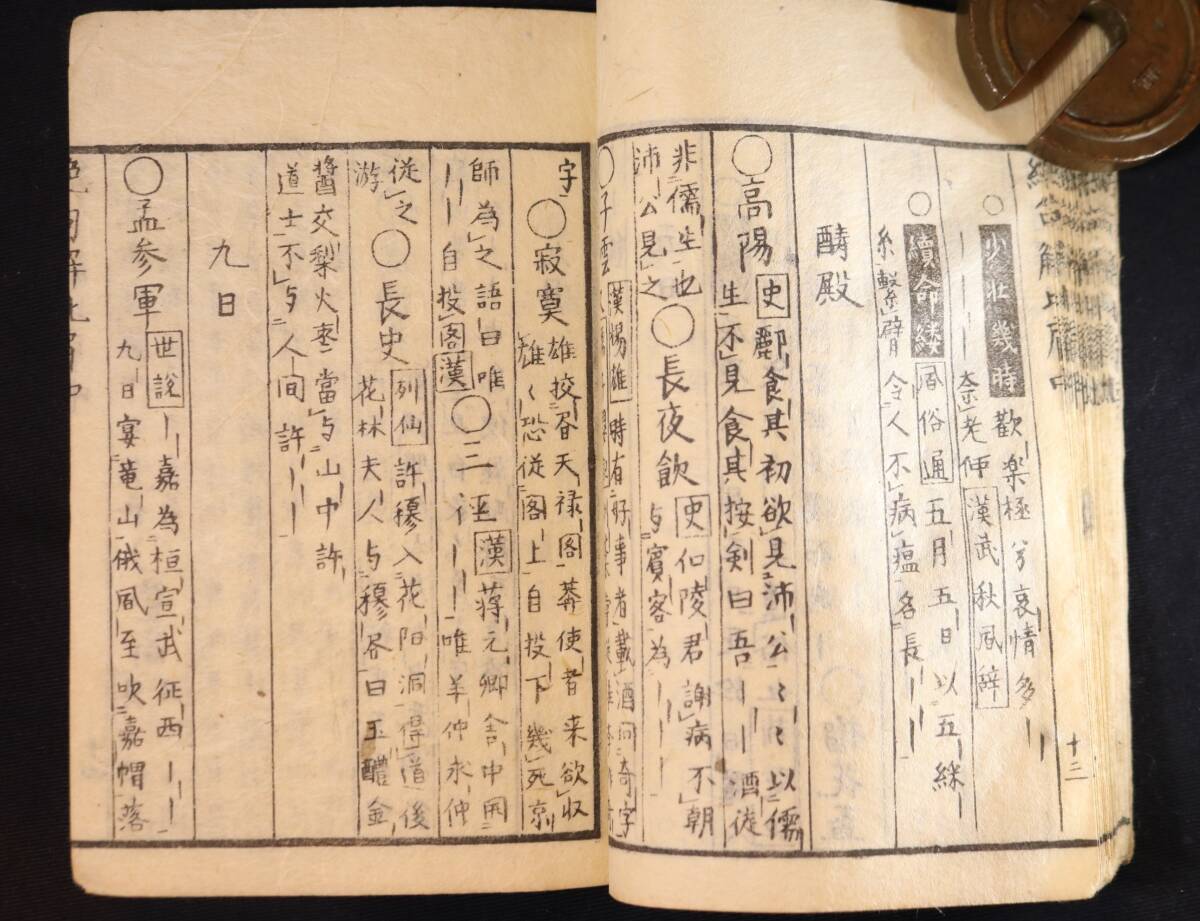 十二
○少壮幾時 歡楽極兮哀情多
奈老何 漢武秋風辞
○續命縷 風俗通 五月五日以五綵
糸繋臂令人不病瘟名長
酺殿
○高陽 史 酈食其初欲見沛公以儒
生不見食其按剣曰吾 酒徒
非儒生也
沛公見之 ○長夜飲 史 信陵君謝病不朝
与賓客為
○子雲 漢楊雄 時有好事者載酒問奇字
字 ○寂寞 雄挍各天禄閣莽使者来欲収
雄々恐従閣上自投下幾死京
師為之語曰唯
自投閣 漢 ○三径 漢 蒋元卿舎中開
唯羊仲求仲
従之
游 ○長史 列仙 許穆入花阳洞得道後
花林夫人与穆各曰玉醴金
醬交梨火枣當与山中許
道士不与人間許
九日
○孟参軍 世説 嘉為桓宣武征西
九日宴竜山俄風至吹嘉帽落